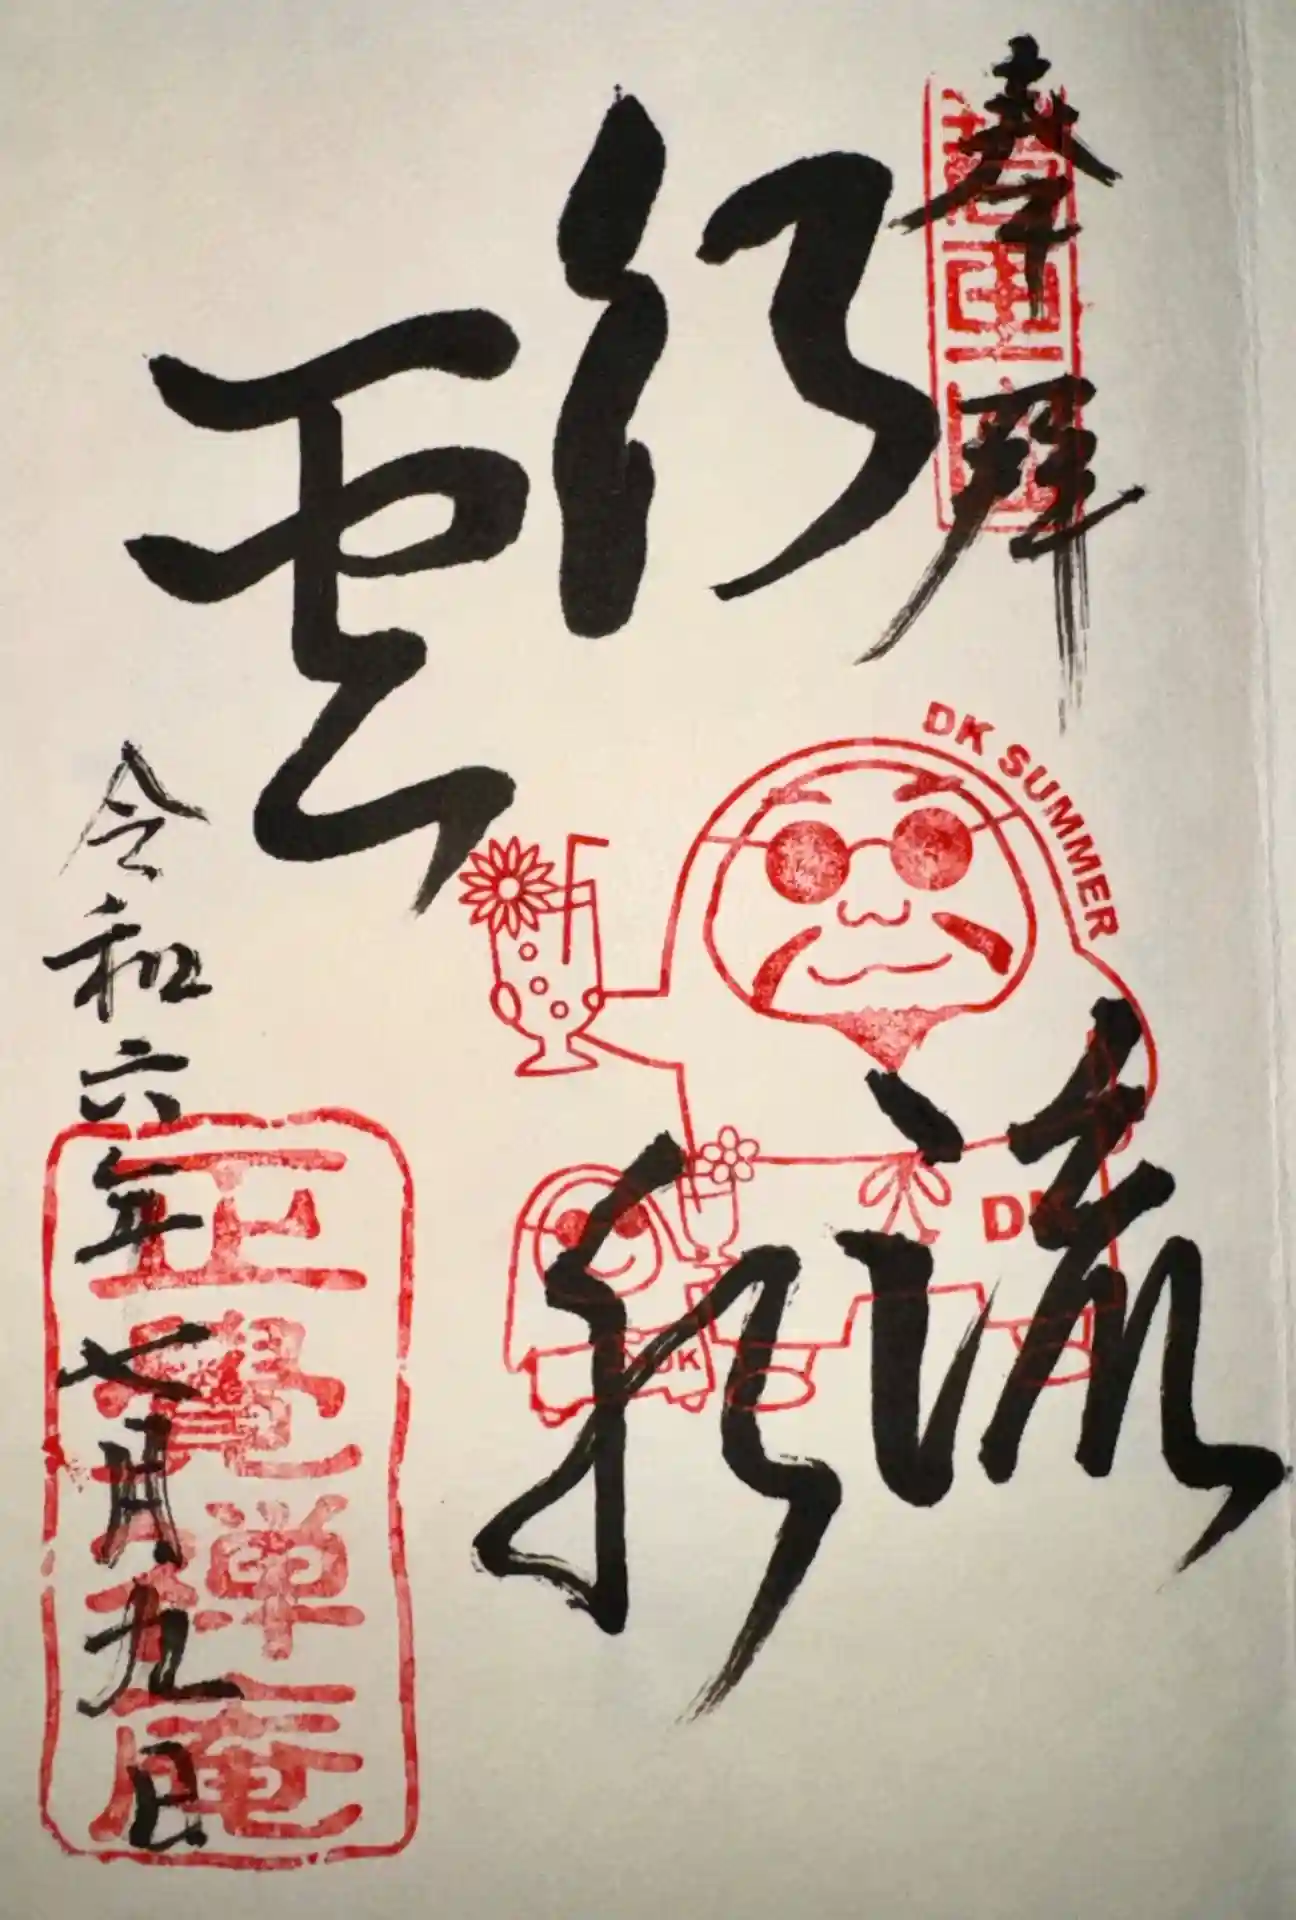 奉拝
行雲
流水
DK SUMMER
DK
DK
令和六年七月九日
正覺禅庵